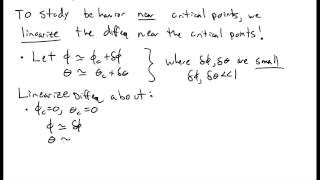 To study behavior near critical points, we
linearize the diffeq near the critical points!
• Let ϕ ≃ ϕc+δϕ
θ ≃ θc+δθ
} where δϕ, δθ are small
δϕ, δθ<<1
Linearize Diffeq about:
• ϕc=0, θc=0
ϕ ≃ δϕ
θ ~